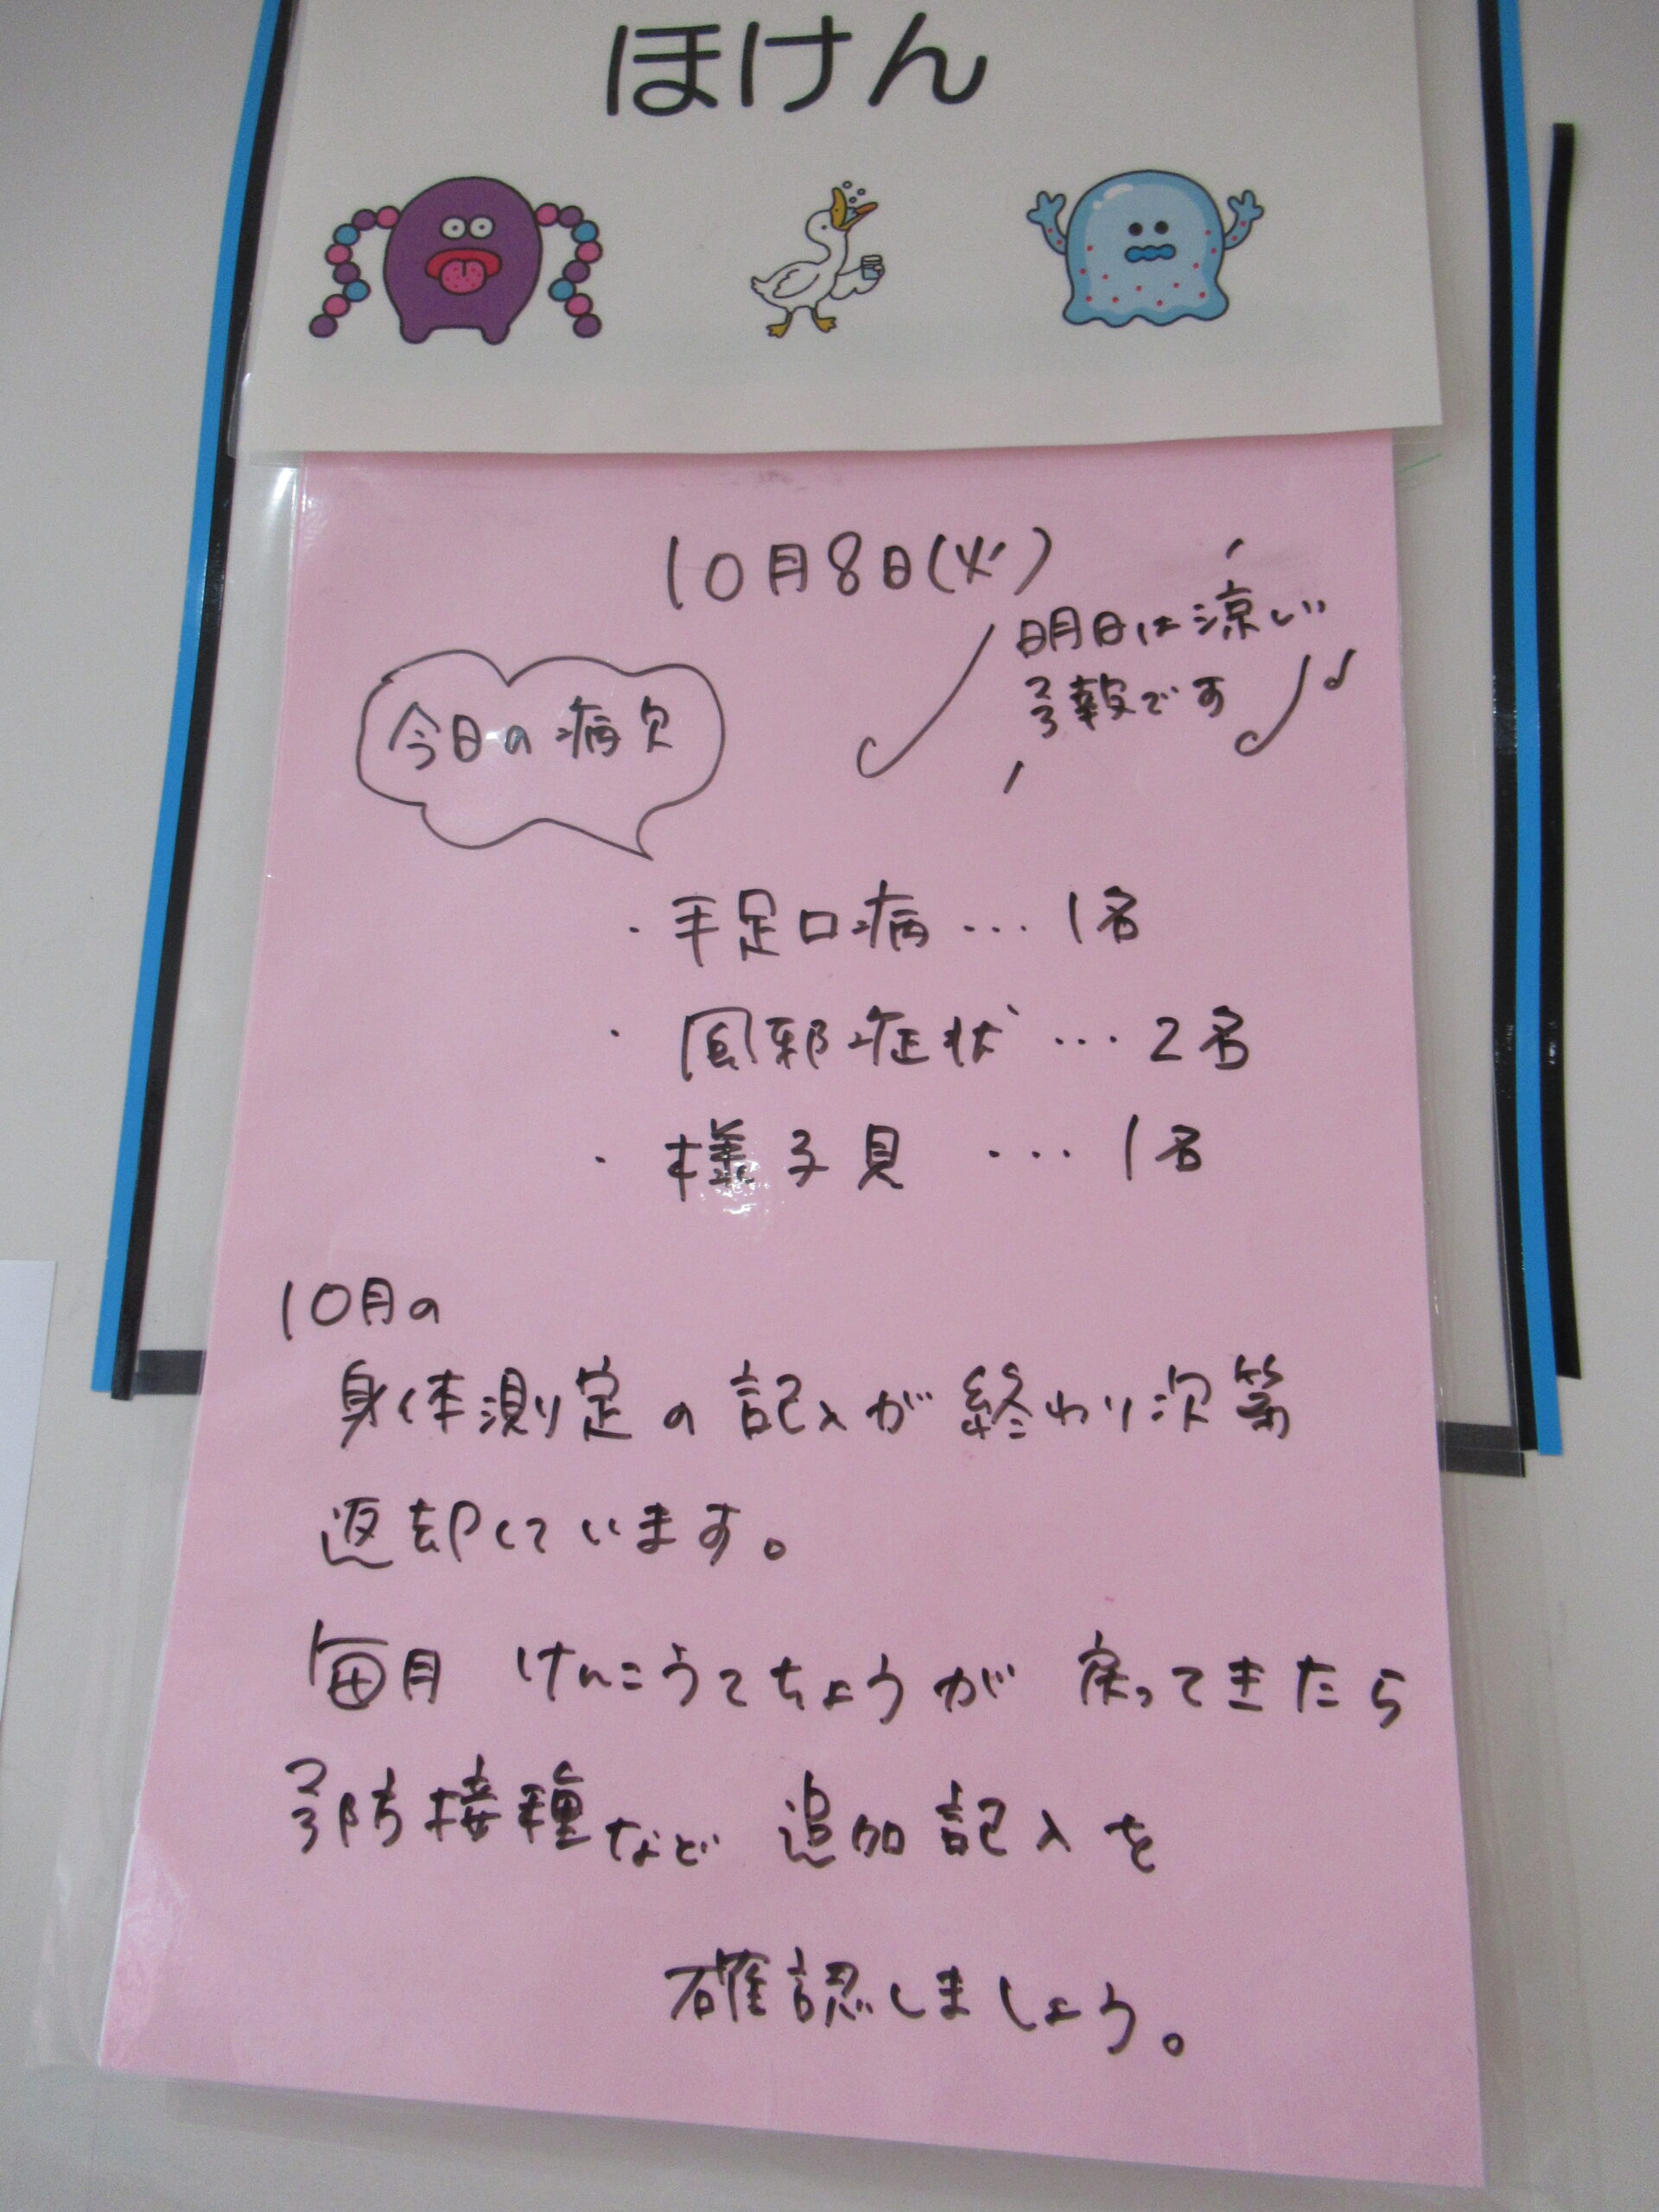 ほけん
10月8日(火)
明日は涼しい
予報です
今日の病欠
・手足口病…1名
・風邪症状…2名
・様子見…1名
10月の
身体測定の記入が終わり次第
返却しています。
毎月 けんこうてちょうが 戻ってきたら
予防接種など 追加記入を
確認しましょう。